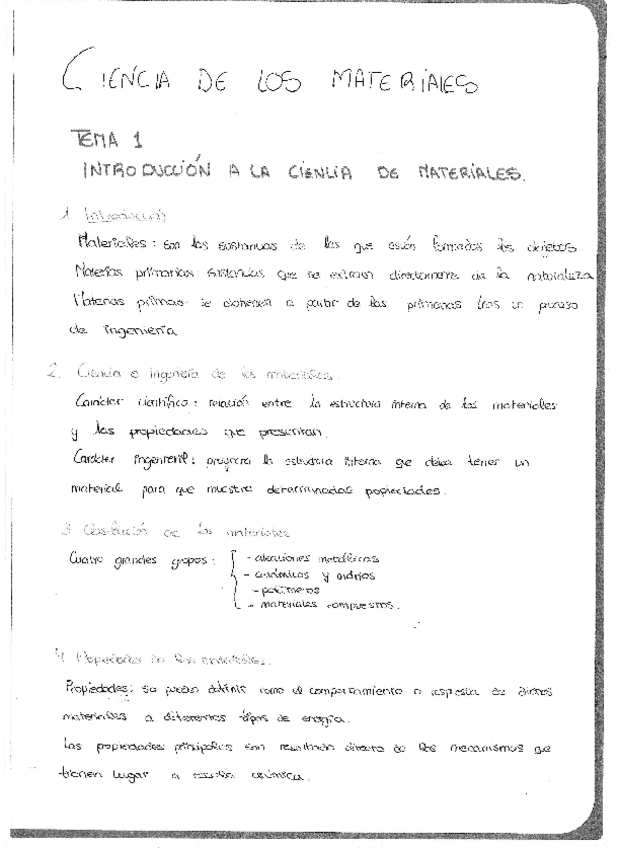 CIENCIA DE LOS MATERIALES
TEMA 1
INTRODUCCIÓN A LA CIENCIA DE MATERIALES.
1 Introducción
Materiales: son las sustancias de las que están formados los objetos
Materias primarias: sustancias que se extraen directamente de la naturaleza
Materias primas: se obtienen a partir de las primarias tras un proceso
de ingeniería
2. Ciencia e ingeniería de los materiales.
Carácter científico: relación entre la estructura interna de los materiales
y las propiedades que presentan.
Carácter ingenieril: proyecta la estructura interna que debe tener un
material para que muestre determinadas propiedades.
3 Clasificación de los materiales
Cuatro grandes grupos: - aleaciones metálicas
- cerámicos y vidrios
- polímeros
- materiales compuestos.
4 Propiedades de los materiales.
Propiedades: se pueden definir como el comportamiento o respuesta de dichos
materiales a diferentes tipos de energía.
Las propiedades principales son resultado directo de los mecanismos que
tienen lugar a escala